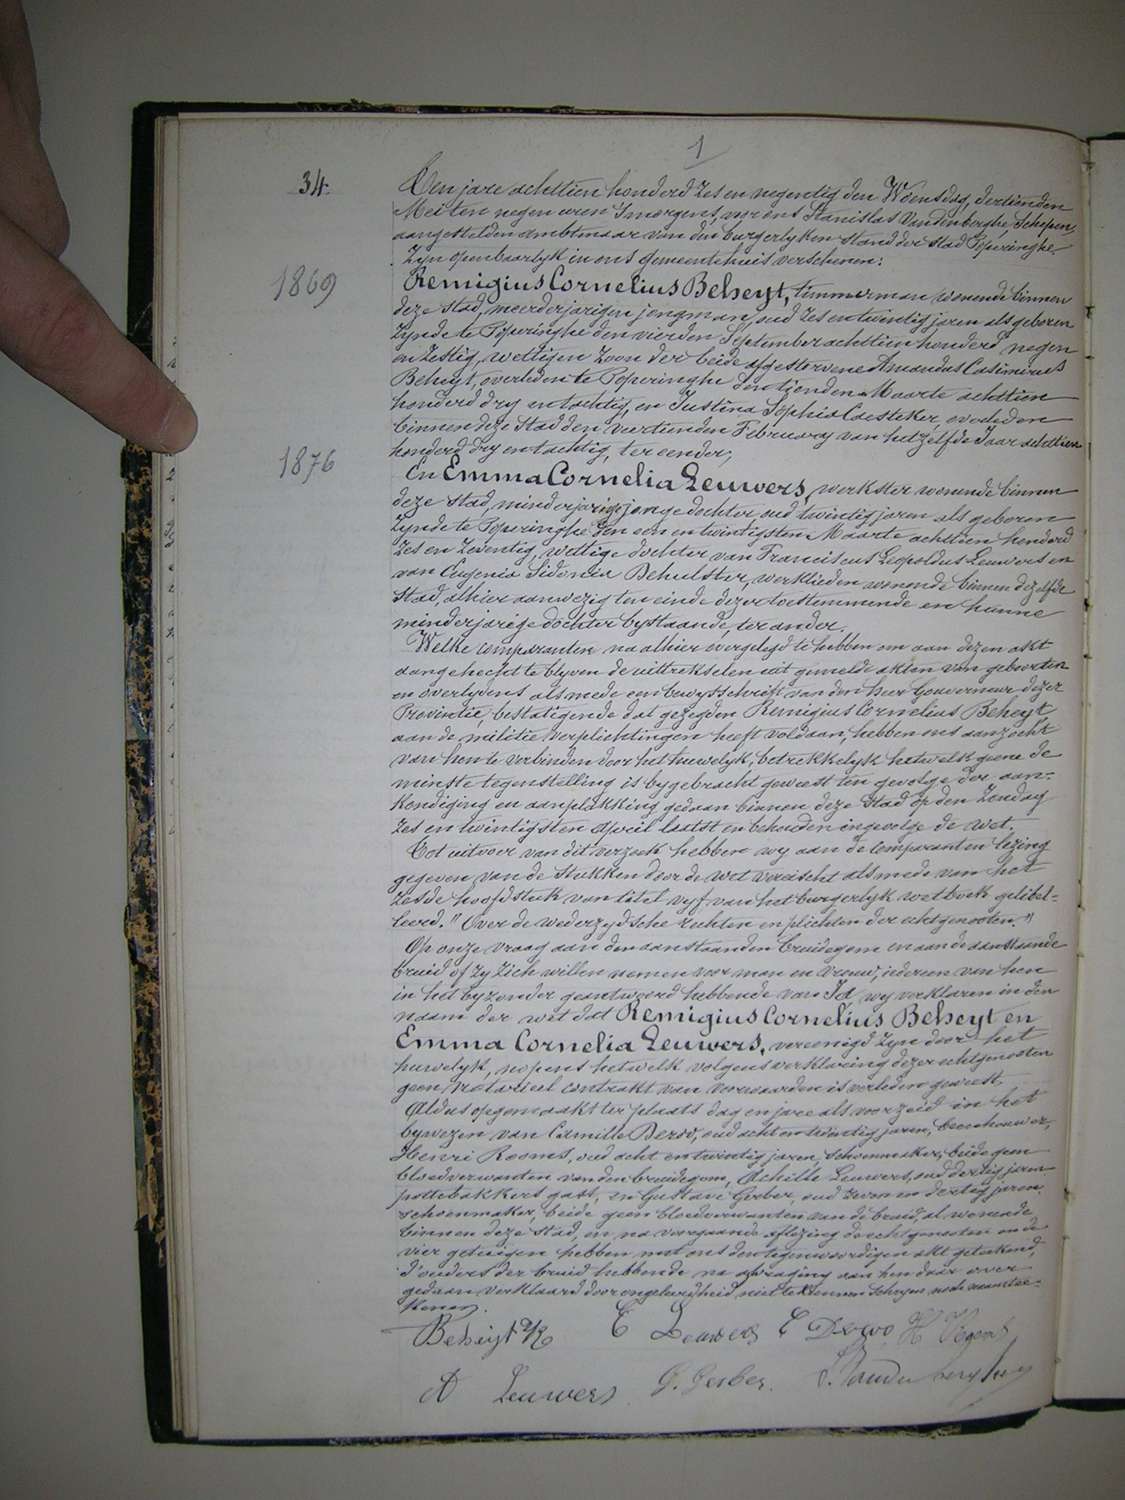 1
34.
Ten jare achttien honderd zes en negentig den Woensdag, dertienden
Mei ten negen uren 'smorgens, voor ons Stanislas Vandenberghe Schepen,
aangestelden ambtenaar van den burgerlyken stand der stad Poperinghe
Zyn openbaarlyk in ons gemeentehuis verschenen:
1869
Remigius Cornelius Beheyt, timmerman wonende binnen
deze stad, meerderjarigen jongman, oud zes en twintig jaren als geboren
zynde te Poperinghe den vierden September achttien honderd negen
en zestig, wettigen zoon der beide afgestorvene Amandus Casimirus
Beheyt, overleden te Poperinghe den tienden Maarte achttien
honderd dry en tachtig, en Justina Sophia Coesteker, overleden
binnen deze stad den veertienden February van hetzelfde Jaar achttien
honderd dry en tachtig, ter eender,
1876
En Emma Cornelia Leuwers, werkster wonende binnen
deze stad, minderjarige jonge dochter oud twintig jaren als geboren
zynde te Poperinghe den een en twintigsten Maarte achttien honderd
zes en zeventig, wettige dochter van Franciscus Leopoldus Leuwers en
van Eugenia Sidonia Behulster, werklieden wonende binnen dezelfde
stad, alhier aanwezig ten einde dezer toestemmende en hunne
minderjarige dochter bystaande, ter ander.
Welke comparanten na alhier overgelegd te hebben om aan dezen akt
aangehecht te blyven de uittrekselen uit gemelde akten van geboorten
en overlydens alsmede een bewysschrift van den heer Gouverneur dezer
Provincie, bestatigende dat gezegden Remigius Cornelius Beheyt
aan de militie verplichtingen heeft voldaan, hebben ons aanzocht
van hen te verbinden door het huwelyk, betrekkelyk hetwelk geene de
minste tegenstelling is bygebracht geweest ten gevolge der aan=
kondiging en aanplakking gedaan binnen deze stad op den Zondag
zes en twintigsten April laatst en behouden ingevolge de wet.
Tot uitvoer van dit verzoek hebben wy aan de comparanten lezing
gegeven van de stukken door de wet vereischt alsmede van het
zesde hoofdstuk van titel vyf van het burgerlyk wetboek getitel=
leerd. " Over de wederzydsche rechten en plichten der echtgenooten. "
Op onze vraag aan den aanstaanden bruidegom en aan de aanstaande
bruid of zy zich willen nemen voor man en vrouw, iedereen van hen
in het byzonder geantwoord hebbende van Ja, wy verklaren in den
naam der wet dat Remigius Cornelius Beheyt en
Emma Cornelia Leuwers, vereenigd zyn door het
huwelyk, nopens hetwelk volgens verklaring dezer echtgenooten
geen notarieel contrakt van voorwaarden is verleden geweest.
Aldus opgemaakt ter plaats dag en jare als voorzeid in het
bywezen van Camille oud acht en twintig jaren, beenhouwer,
Henri oud acht en twintig jaren, schoenmaker, beide geen
bloedverwanten van den bruidegom, Achille Leuwers, oud dertig jaren
pottebakkers gast, en Gustave Gerber, oud zeven en dertig jaren
schoenmaker, beide geen bloedverwanten van de bruid, al wonende
binnen deze stad, en na voorgaande aflezing de echtgenooten en de
vier getuigen hebben met ons den tegenwoordigen akt geteekend,
d'ouders der bruid hebbende na afvraging aan hen daar over
gedaan verklaard door ongeleerdheid niet te kunnen schryven noch naamtee=
kenen.
Beheyt R E Leuwers C H
A Leuwers G. Gerber. S. Vandenberghe